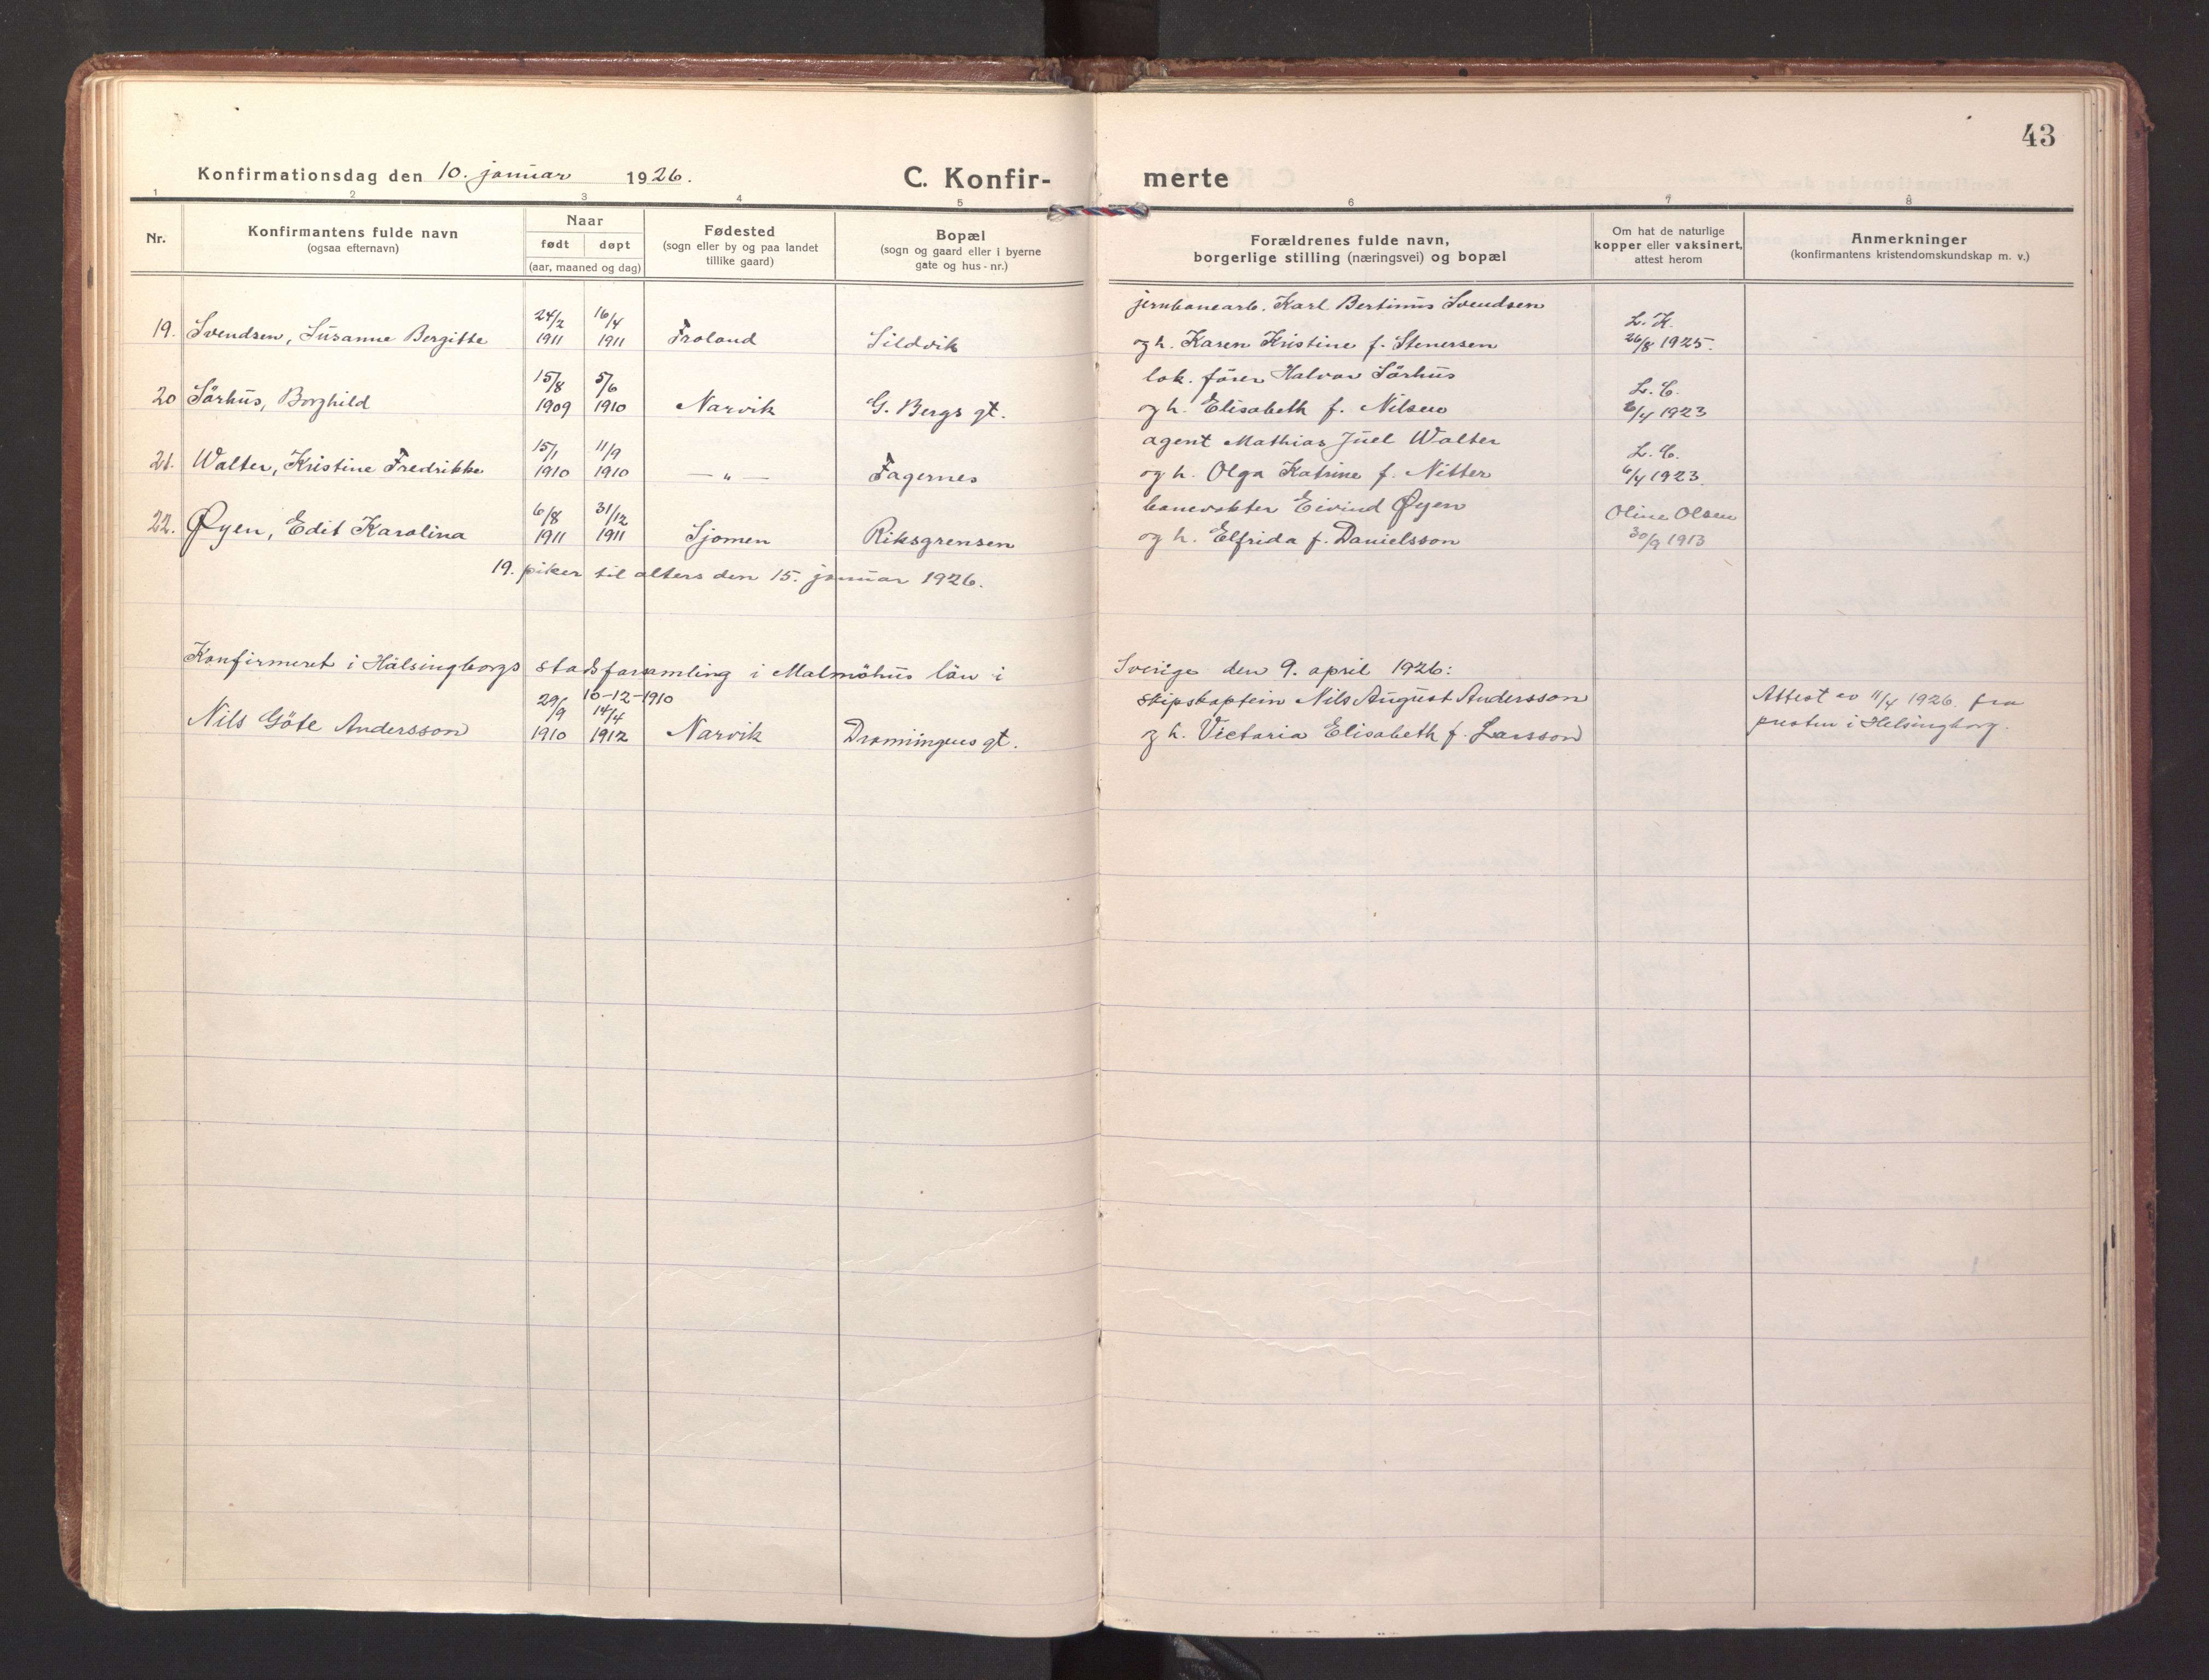 43
Konfirmationsdag den 10. januar 1926.
C. Konfir-
merte
1 2 3 4 5 6 7 8
Nr.
Konfirmantens fulde navn
(ogsaa efternavn)
Naar
født døpt
(aar, maaned og dag)
Fødested
(sogn eller by og paa landet
tillike gaard)
Bopæl
(sogn og gaard eller i byerne
gate og hus-nr.)
Forældrenes fulde navn,
borgerlige stilling (næringsvei) og bopæl
Om hat de naturlige
kopper eller vaksinert,
attest herom
Anmerkninger
(konfirmantens kristendomskundskap m. v.)
24/2 16/4 jernbanearb. Karl Bertinus Svendsen L. K.
19. Svendsen, Susanne Bergitte 1911 1911 Froland Sildvik og h. Karen Kristine f. Stenersen 26/8 1925.
15/8 5/6 lok. fører Halvor Sörhus L. C.
20 Sörhus, Borghild 1909 1910 Narvik G. Bergs gt. og h. Elisabeth f. Nilsen 6/4 1923
15/1 11/9 agent Mathias Juel Walter L. C.
21. Walter, Kristine Fredrikke 1910 1910 — „ — Fagernes og h. Olga Katrine f. Nitter 6/4 1923.
6/8 31/12 banevokter Eivind Øyen Oline Olsen
22. Øyen, Edit Karolina 1911 1911 Sjomen Riksgrensen og h. Elfrida f. Danielsson 30/9 1913
19. piker til alters den 15. januar 1926.
Konfirmeret i Hälsingborgs stadsforsamling i Malmöhus län i Sverige den 9. april 1926:
29/9 10-12-1910 14/4 skipskaptein Nils August Andersson Attest av 11/4 1926. fra
Nils Göte Andersson 1910 1912 Narvik Dronningens gt. og h. Victoria Elisabeth f. Larsson presten i Helsingborg.